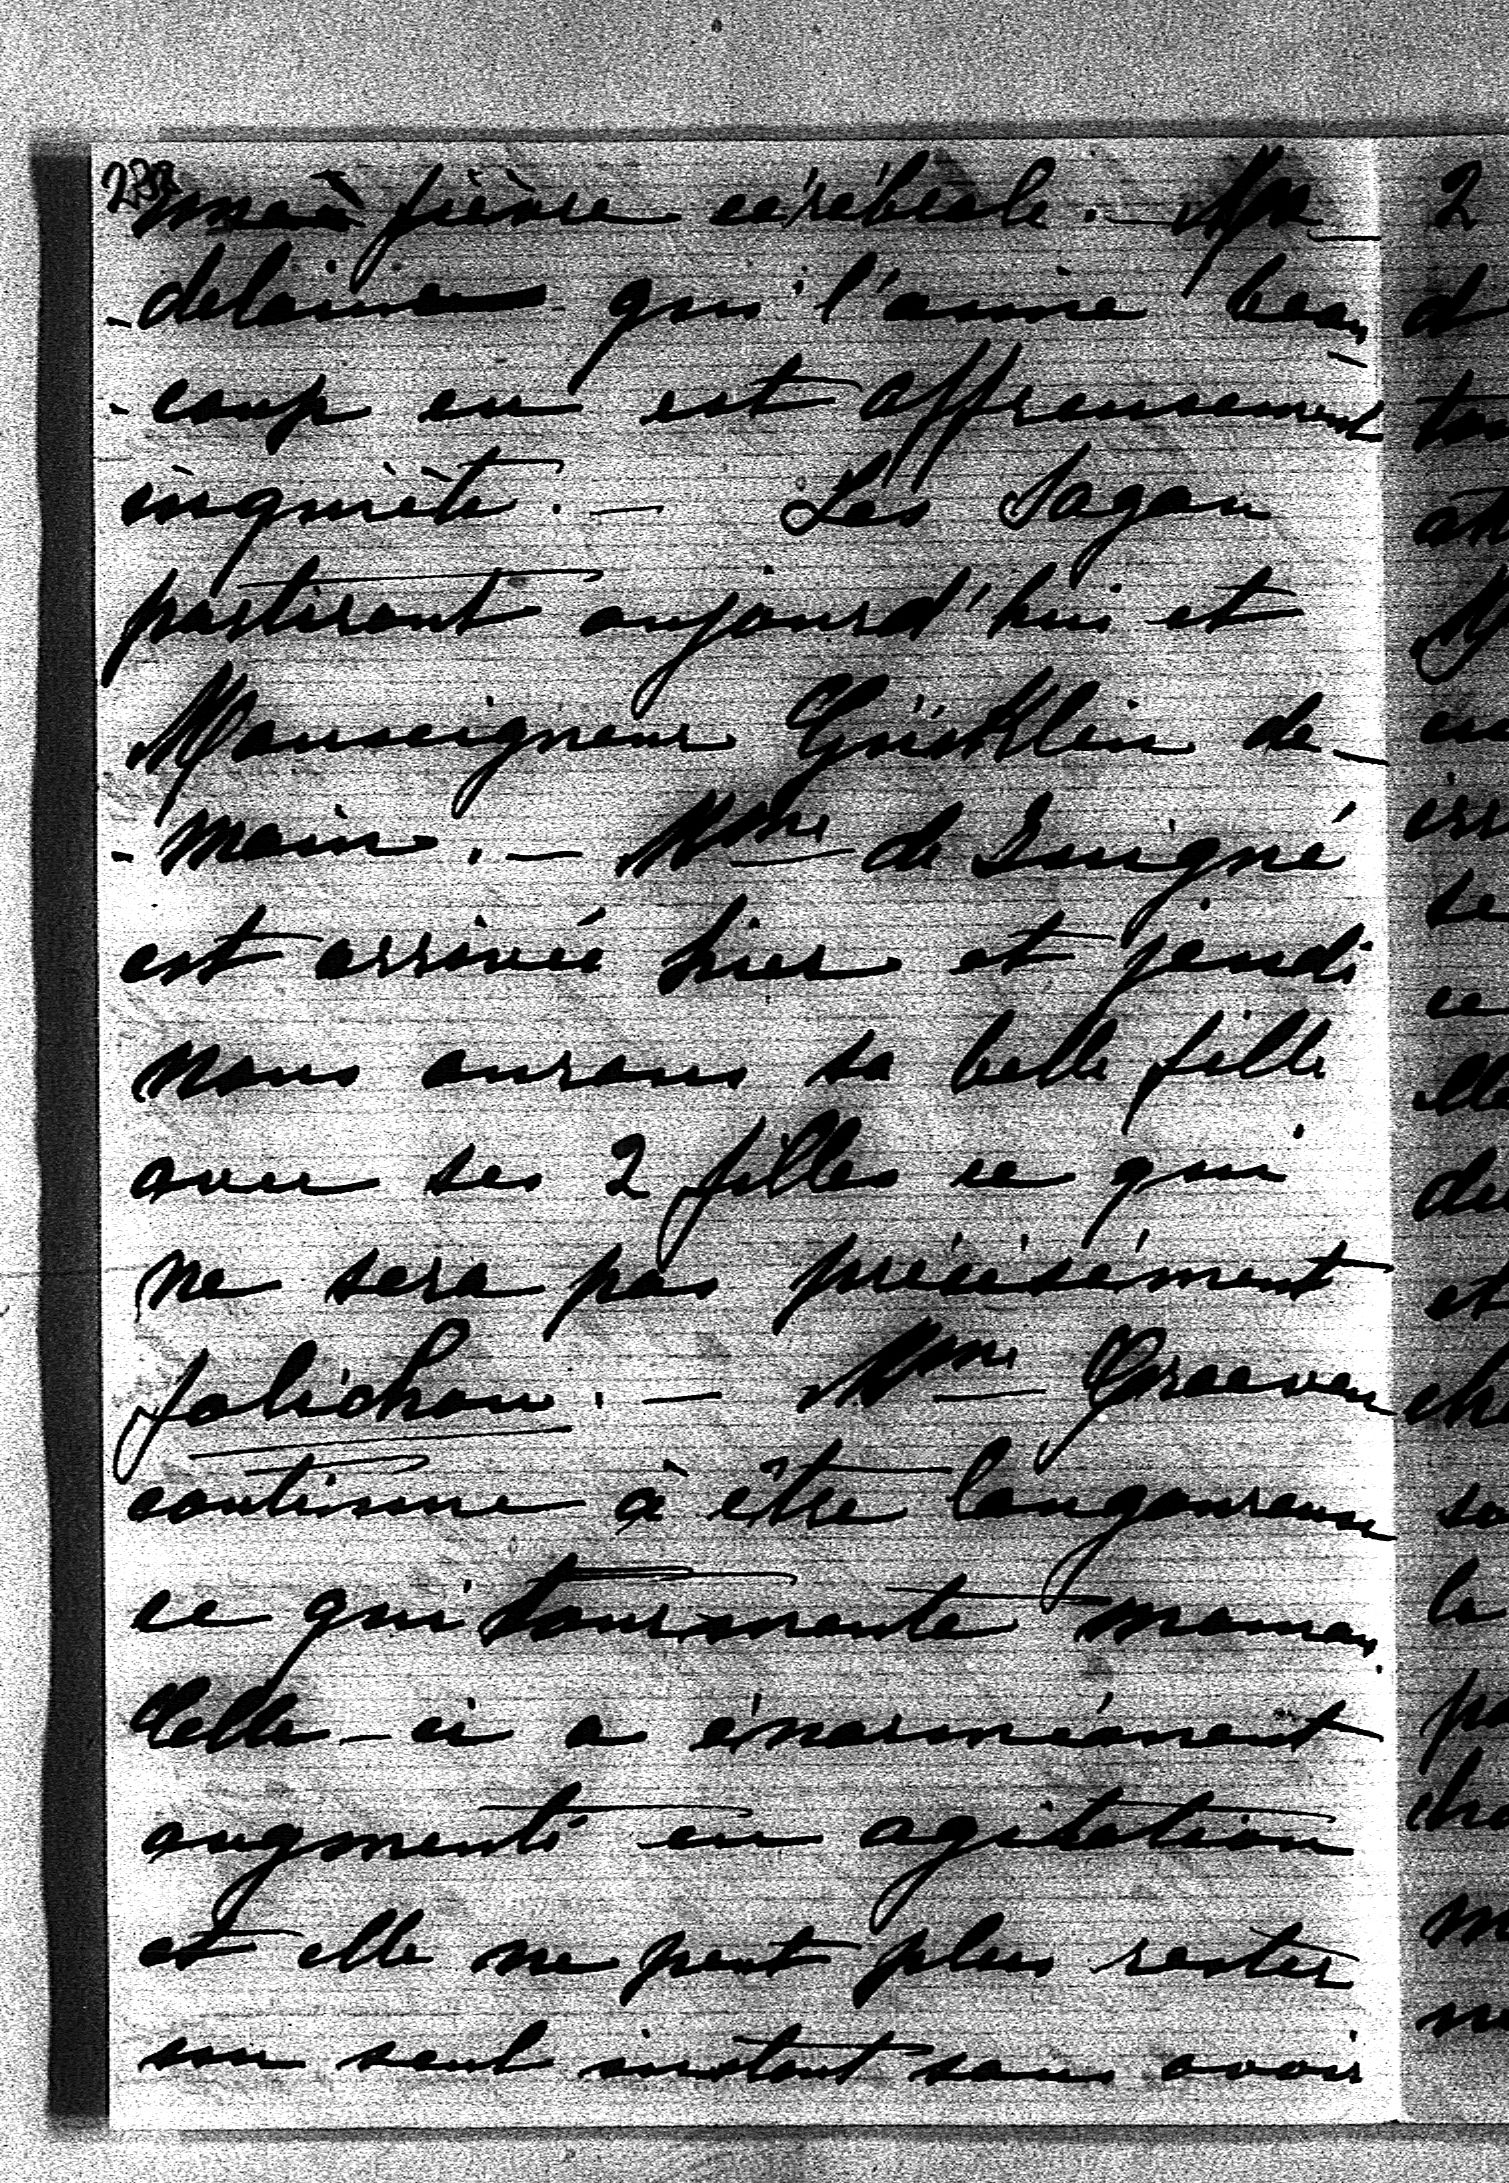 une fièvre cérébrale. — Ma
-delaine qui l'aime beau
-coup en est affreusement
inquiète. — Les Sagan
partiront aujourd'hui et
Monseigneur de
-main. — Mme de
est arrivée hier et jeudi
nous aurons sa belle fille
avec ses 2 filles ce qui
ne sera pas précisément
folichon. — Mme Graeven
continue à être langoureuse
ce qui tourmente maman.
Celle-ci a énormément
augmenté en agitation
et elle ne peut plus rester
un seul instant sans avoir